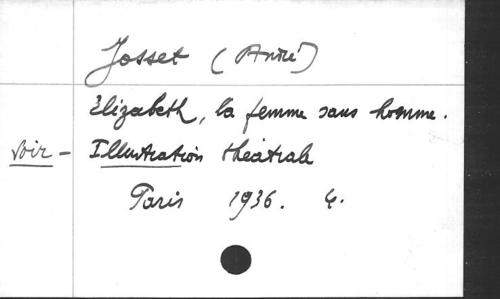 Josset (André)
Elizabeth, la femme sans homme.
Voir - Illustration théatrale
Paris 1936. 4.